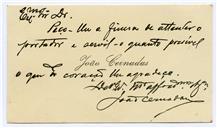 Exmo Sr. Dr.
Peço-lhe a fineza de attender o
portador e servil-o quanto possivel
João Cernadas
o que de coração lhe agradeço.
João Cernadas